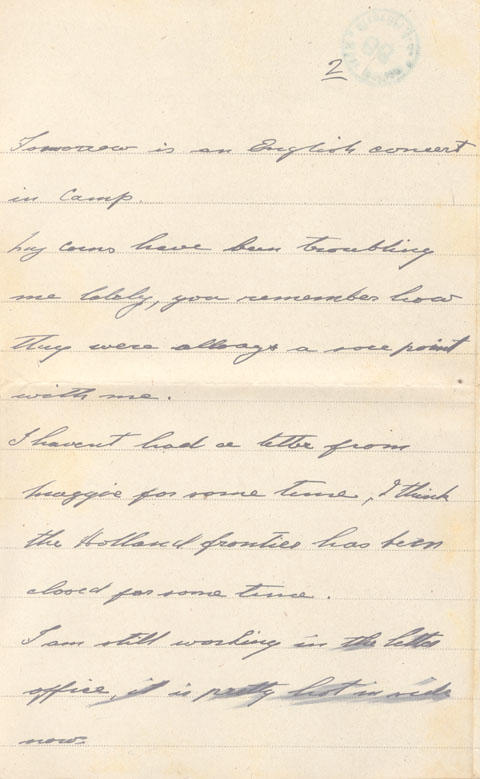 2
Tomorrow is an English concert
in Camp.
My corns have been troubling
me lately, you remember how
they were allways a sore point
with me.
I havent had a letter from
Maggie for some time, I think
the Holland frontier has been
closed for some time.
I am still working in the letter
office, it is pretty hot in side
now.